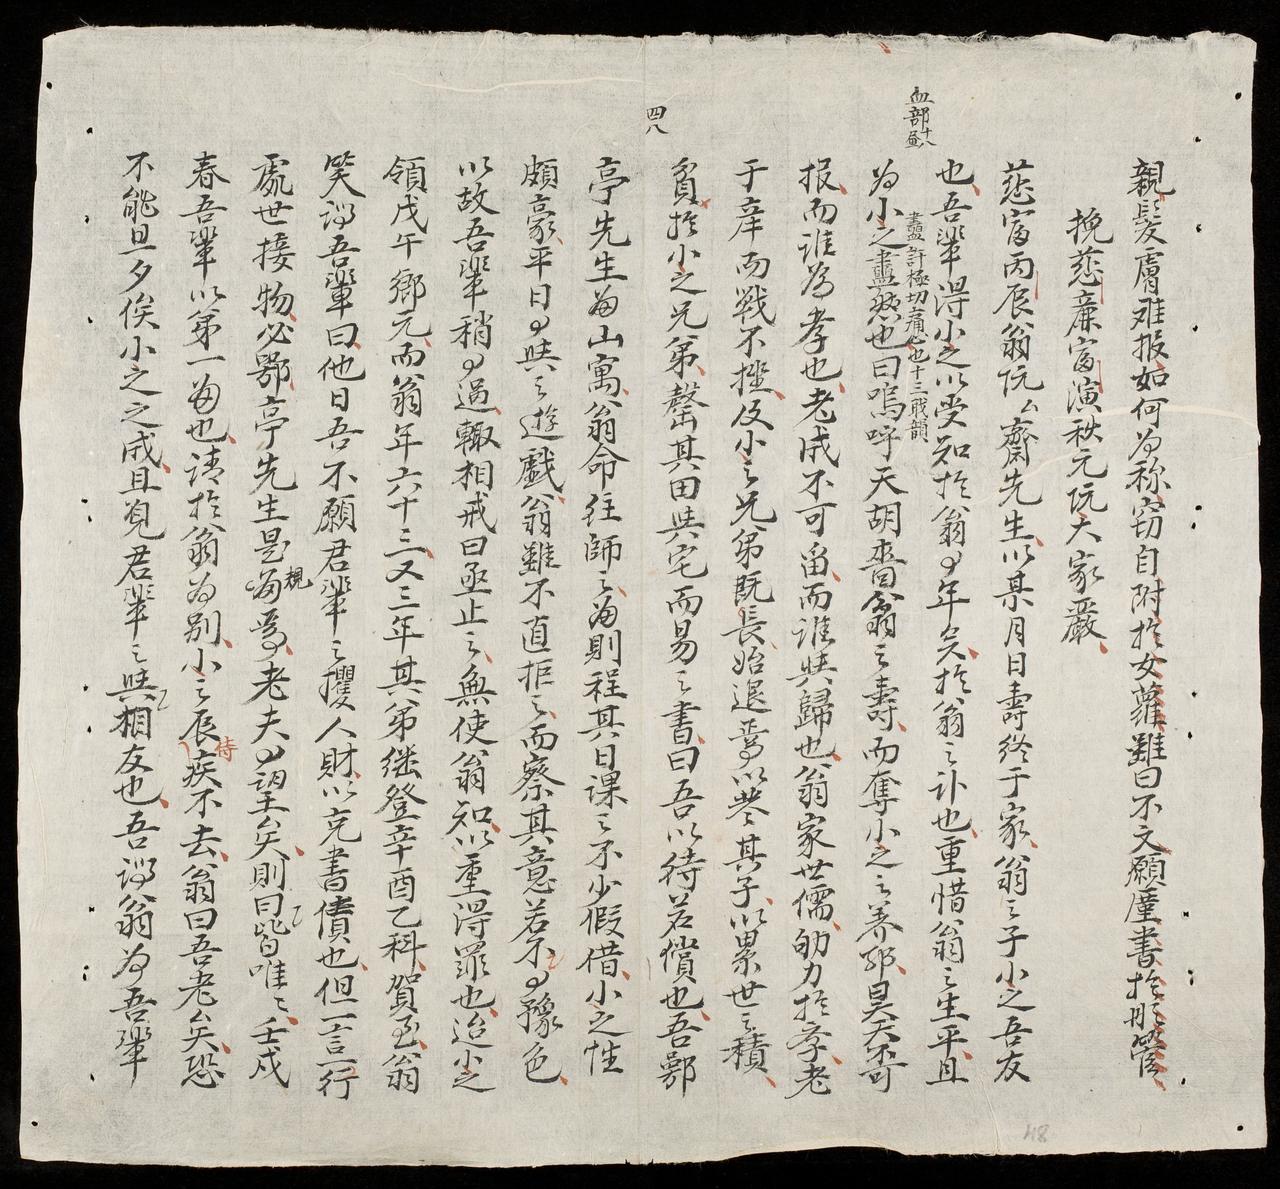 親髮膚难报如何为称窃自附於女蘿雖曰不文願屢書於彤管
挽慈廉富演秩元阮大家嚴
慈富丙辰翁阮公齋先生以某月日壽终于家翁之子小之吾友
也吾輩得小之以受知於翁有年矣於翁之讣也重惜翁之生平且
为小之衋然也曰嗚呼天胡啬翁之壽而奪小之之养耶昊天不可
报而谁为孝也老成不可畱而谁與歸也翁家世儒劬力於学老
于庠而戰不挫及小之兄弟既長始退焉以養其子以累世之積
貧於小之兄弟罄其田與宅而易之書曰吾以待若償也吾鄂
亭先生為山寓翁命往師之為則程其日課之不少假借小之性
頗豪平日有與之遊戲翁雖不直拒之而察其意若不有豫色
以故吾輩稍有過輙相戒曰亟止之無使翁知以重得罪也迨小之
領戊午鄉元而翁年六十三又三年其弟继登辛酉乙科賀至翁
笑謂吾輩曰他日吾不願君輩之攫人財以充書債也但一言一行
處世接物必鄂亭先生是為焉老夫有望矣則曰皆唯之壬戌
春吾輩以第一為也请於翁为别小之辰疾不去翁曰吾老矣恐
不能旦夕俟小之之成且覓君輩之與相友也吾謂翁为吾輩
血部十八畫
衋許極切痛也十三職韻
四八
規
侍
48